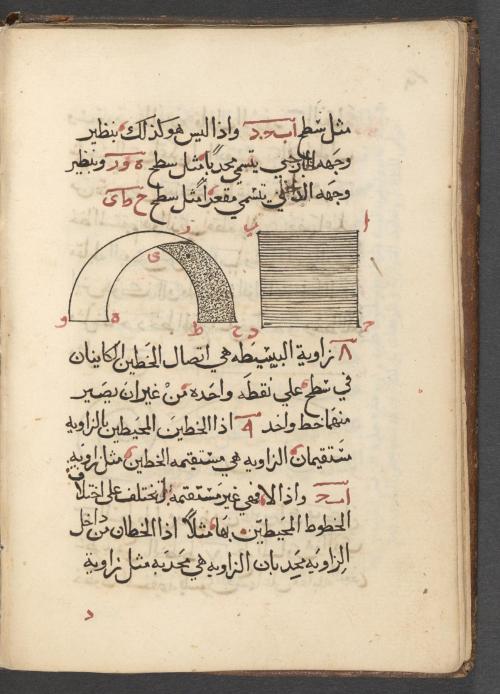 مثل سطح ابجد واذا ليس هو كذلك بنظير
وجهه الخارجي يتسمي محدبا مثل سطح ه و ر وبنظير
وجهه الداخلي يتسمي مقعرا مثل سطح ح ط ى
ا
ب
ر
ى
و
ه
ط
ح
د
ج
٨ زاوية البسيطه هي اتصال الخطين الكاينان
في سطح علي نقطه واحده من غير ان يصير
منهما خط واحد ٩ اذا الخطين المحيطين بالزاوية
مستقيمان الزاويه هي مستقيمه الخطين مثل زاوية
ابج واذا لا فهي غير مستقيمه تختلف علي اختلاف
الخطوط المحيطين بها مثلا اذا الخطان من داخل
الزاويه محدبان الزاويه هي محدبه مثل زاوية